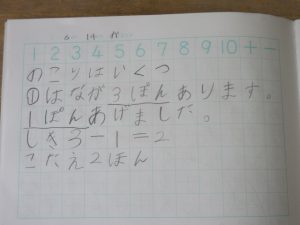 1 2 3 4 5 6 7 8 9 10 + -
のこりはいくつ
①はなが3ぼんあります。
1ぽんあげました。
しき3-1=2
こたえ2ほん